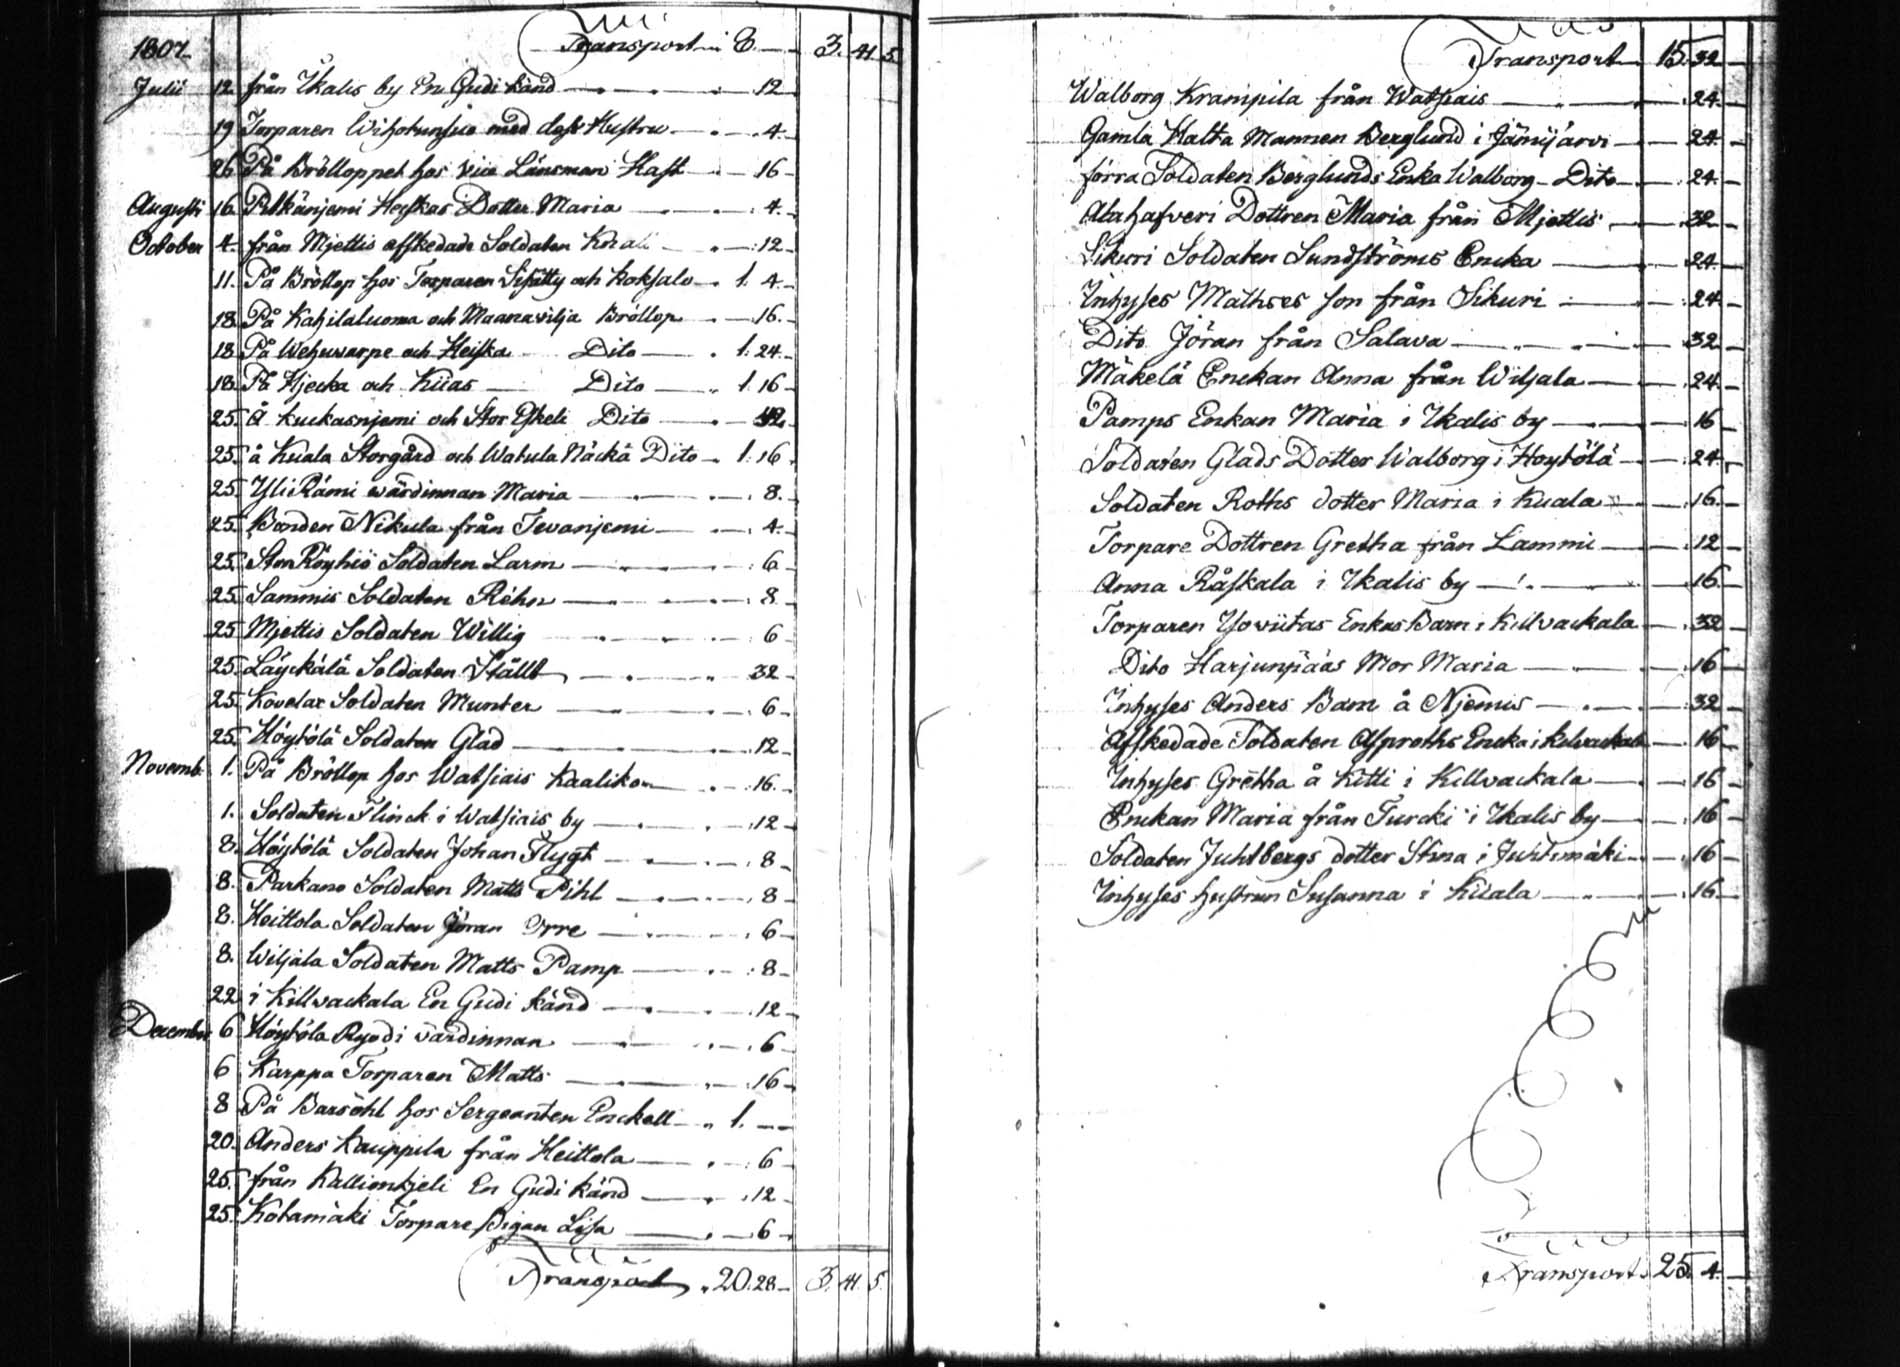 1807. Transport 8. — 3. 41 5
Julii 12 från Ikalis by En Gudi känd — 12
19 Torparen med dess Hustru — 4.
26 På Brölloppet hos Vice Länsman Hast — 16
Augusti 16. Pitkänjemi Heiskas Dotter Maria — 4.
October 4. från Mjettis afskedade Soldaten — 12
11. På Bröllop hos Torparen och Koksalo 1. 4.
18. På Kahilaluoma och Maanavilja Bröllop — 16.
18. På Wehuvarpe och Heiska Dito — 1. 24
18. På Kjecka och Kiias — Dito — 1. 16
25. Å Kuckasnjemi och Stor Eskeli Dito —
25. å Kuala Storgård och Watula Näckä Dito — 1. 16.
25. Yli Rämi värdinnan Maria — 8.
25. Bonden Nikula från Tevanjemi — 4.
25. Stor Röyhiö Soldaten Larm — 6
25. Sammis Soldaten Rehn — 8
25 Mjettis Soldaten Willig — 6
25. Läyckälä Soldaten Ställt — 32
25. Kovelax Soldaten Munter — 6
25. Höytölä Soldaten Glad — 12
Novemb. 1. På Bröllop hos Watsiais Kaaliko — 16.
1. Soldaten Flinck i Watsiais by — 12
8. Höytölä Soldaten Johan Flygt — 8
8. Parkano Soldaten Matts Pihl — 8
8. Heittola Soldaten Jöran Orre — 6
8. Wiljala Soldaten Matts Pamp — 8
22 i Killvackala En Gudi känd — 12
December 6 Höytölä Ryödi värdinnan — 6
6 Karppa Torparen Matts — 16
8 På Barsöhl hos Sergeanten Enckell — 1. —
20. Anders Kauppila från Heittola — 6
25. från Kallimkjeli En Gudi känd — 12
25. Kotamäki Torpare Pigan Lisa — 6
Transport 20. 28 — 3. 41. 5.
Transport 15. 32
Walborg Krampila från Watsiais — 24
Gamla Halta Mannen Berglund i Jämijärvi — 24
förra Soldaten Berglunds Enka Walborg Dito — 24
Alahafveri Dottren Maria från Mjettis — 32
Sikuri Soldaten Sundströms Encka — 24
Inhyses Mathses son från Sikuri — 24
Dito Jöran från Salava — 32
Mäkelä Enckan Anna från Wiljala — 24
Pamps Enkan Maria i Ikalis by — 16
Soldaten Glads Dotter Walborg i Höytölä — 24
Soldaten Roths dotter Maria i Kuala — 16
Torpare Dottren Gretha från Lammi — 12
Anna Råskala i Ikalis by — 16
Torparen Enkas Barn i Killvackala — 32
Dito Harjunpääs Mor Maria — 16
Inhyses Anders Barn å Njemis — 32
Afskedade Soldaten Asproths Encka i Kilvackala — 16
Inhyses Gretha å Kitti i Killvackala — 16
Enckan Maria från Turcki i Ikalis by — 16
Soldaten Juhlbergs dotter Stina i Juhtimäki — 16
Inhyses hustrun Susanna i Kuala — 16
Transport 25. 4